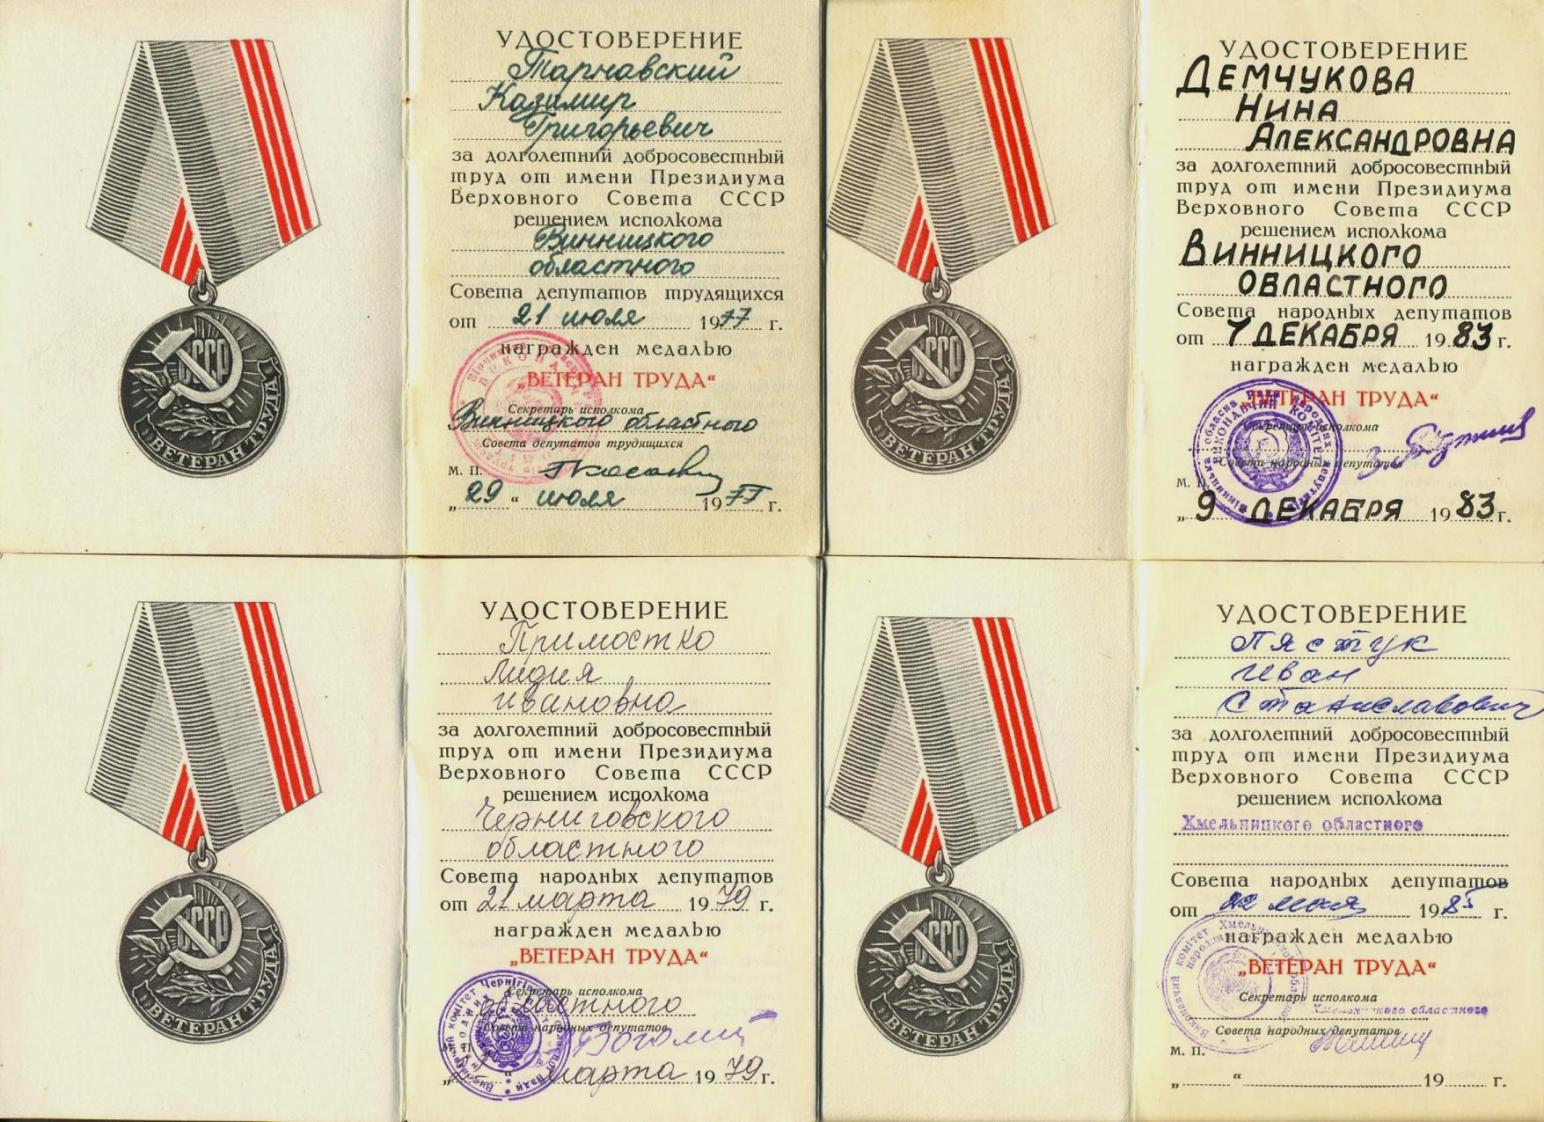 СССР
ВЕТЕРАН ТРУДА
УДОСТОВЕРЕНИЕ
Тарнавский
Казимир
Григорьевич
за долголетний добросовестный
труд от имени Президиума
Верховного Совета СССР
решением исполкома
Винницкого
областного
Совета депутатов трудящихся
от 21 июля 1977 г.
награжден медалью
„ВЕТЕРАН ТРУДА“
Секретарь исполкома
Винницкого областного
Совета депутатов трудящихся
м. п.
„29“ июля 1977 г.
СССР
ВЕТЕРАН ТРУДА
УДОСТОВЕРЕНИЕ
ДЕМЧУКОВА
НИНА
АЛЕКСАНДРОВНА
за долголетний добросовестный
труд от имени Президиума
Верховного Совета СССР
решением исполкома
ВИННИЦКОГО
ОБЛАСТНОГО
Совета народных депутатов
от 7 ДЕКАБРЯ 1983 г.
награжден медалью
„ВЕТЕРАН ТРУДА“
Секретарь исполкома
Совета народных депутатов
м. п.
„9 ДЕКАБРЯ 1983 г.
СССР
ВЕТЕРАН ТРУДА
УДОСТОВЕРЕНИЕ
Примостко
Лидия
Ивановна
за долголетний добросовестный
труд от имени Президиума
Верховного Совета СССР
решением исполкома
Черниговского
областного
Совета народных депутатов
от 21 марта 1979 г.
награжден медалью
„ВЕТЕРАН ТРУДА“
Секретарь исполкома
областного
Совета народных депутатов
марта 1979 г.
СССР
ВЕТЕРАН ТРУДА
УДОСТОВЕРЕНИЕ
Пястук
Иван
Станиславович
за долголетний добросовестный
труд от имени Президиума
Верховного Совета СССР
решением исполкома
Хмельницкого областного
Совета народных депутатов
от 22 мая 1985 г.
награжден медалью
„ВЕТЕРАН ТРУДА“
Секретарь исполкома
Хмельницкого областного
Совета народных депутатов
м. п.
„ “ 19 г.